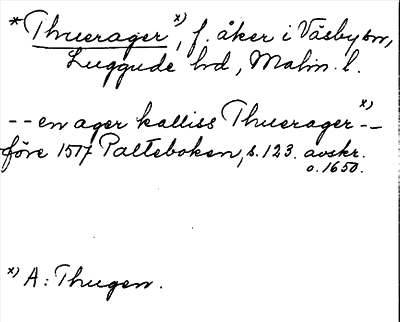 *Thuerager x), f. åker i Väsby sn,
Luggude hd, Malm. l.
-- en ager kalliss Thuerager x) --
före 1517 Palteboken, s. 123. avskr.
o. 1650.
x) A: Thugen.